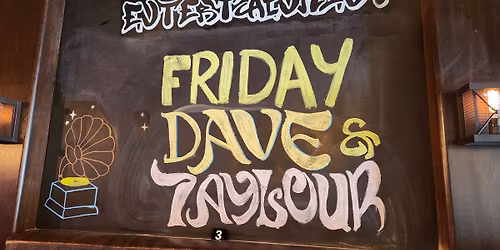 ENTERTAINMENT
FRIDAY
DAVE &
TAYLOUR
3